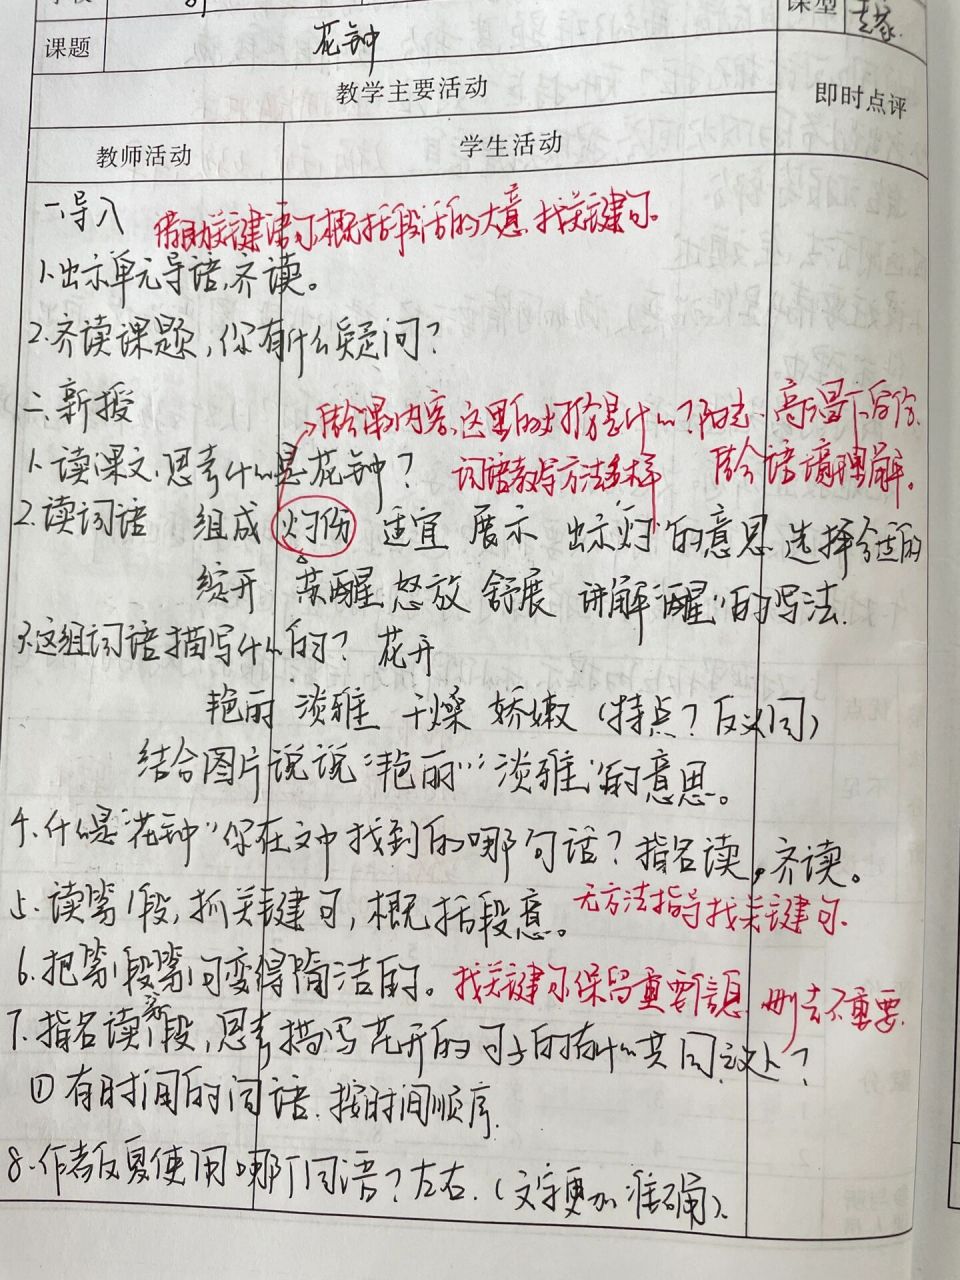 课型
课题 花钟
教学主要活动
即时点评
教师活动 学生活动
一、导入
借助关键语句概括段话的大意,找关键句。
1、出示单元导语,齐读。
2、齐读课题,你有什么疑问?
二、新授
结合课文内容,这里的灼份是什么?
词语教导方法多样
结合语境理解。
1、读课文,思考什么是花钟?
2、读词语 组成 灼份 适宜 展示 出示"灼"的意思 选择合适的
绽开 苏醒 怒放 舒展 讲解"醒"的写法.
3.这组词语描写什么的? 花开
艳丽 淡雅 干燥 娇嫩 (特点?反义词)
结合图片说说"艳丽""淡雅"的意思。
4、什么是"花钟"你在文中找到的哪句话?指名读,齐读。
5、读第1段,抓关键句,概括段意。
无方法指导找关键句.
6、把第1段第1句变得简洁的。
找关键句保留重要信息 删去不重要.
7、指名读第1段,思考描写花开的句子的有什么共同之处?
①有时间的词语.按时间顺序.
8、作者反复使用哪个词语?左右.(文字更加准确).